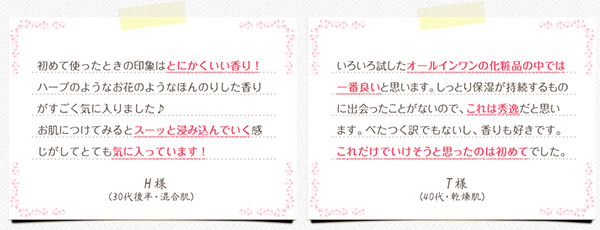 初めて使ったときの印象はとにかくいい香り！
ハーブのようなお花のようなほんのりした香り
がすごく気に入りました♪
お肌につけてみるとスーッと浸み込んでいく感
じがしてとても気に入っています！
H様
（30代後半・混合肌）
いろいろ試したオールインワンの化粧品の中では
一番良いと思います。しっとり保湿が持続するもの
に出会ったことがないので、これは秀逸だと思い
ます。べたつく訳でもないし、香りも好きです。
これだけでいけそうと思ったのは初めてでした。
T様
（40代・乾燥肌）